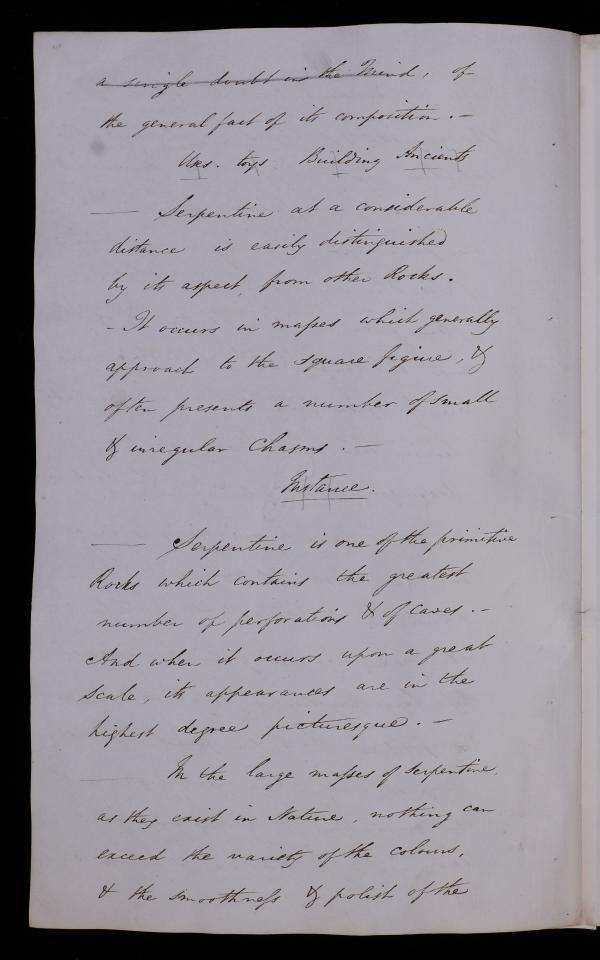 a single doubt in the Mind, of
the general fact of its composition. —
Uses. toys Building Ancients
— Serpentine at a considerable
distance is easily distinguished
by its aspect from other Rocks.
- It occurs in masses which generally
approach to the square figure, &
often presents a number of small
& irregular Chasms. —
Instance.
— Serpentine is one of the primitive
Rocks which contains the greatest
number of perforations & of caves. —
And when it occurs upon a great
Scale, its appearances are in the
highest degree picturesque. —
— In the large masses of Serpentine,
as they exist in Nature, nothing can
exceed the variety of the colours,
& the smoothness & polish of the